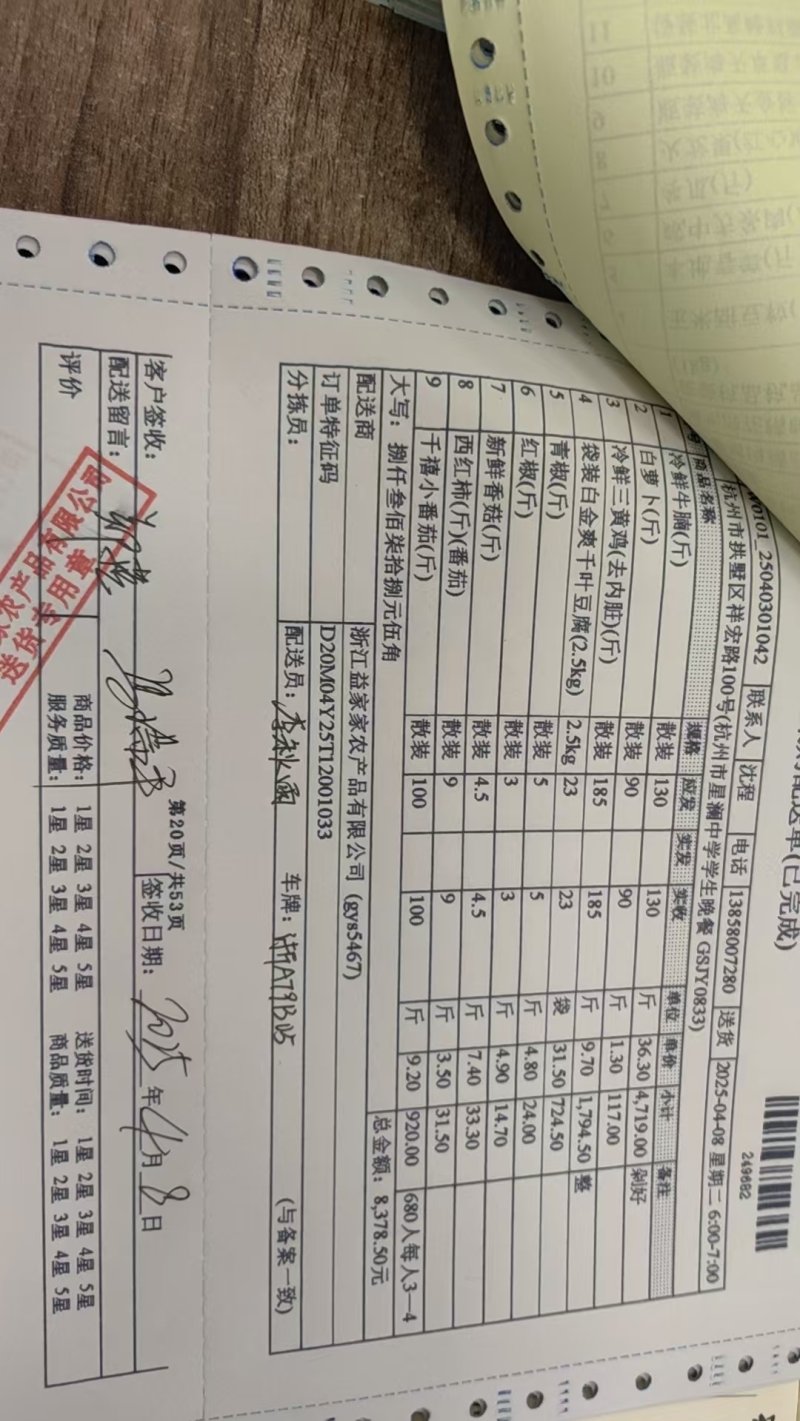 配送单(已完成)
249682
0101_25040301042 联系人 沈程 电话 13858007280 送货 2025-04-08 星期二 6:00-7:00
杭州市拱墅区祥宏路100号(杭州市星澜中学学生晚餐 GSJY0833)
商品名称 规格 应发 实发 实收 单位 单价 小计 备注
1 冷鲜牛腩(斤) 散装 130 130 斤 36.30 4,719.00 剁好
2 白萝卜(斤) 散装 90 90 斤 1.30 117.00
3 冷鲜三黄鸡(去内脏)(斤) 散装 185 185 斤 9.70 1,794.50 整
4 袋装白金爽千叶豆腐(2.5kg) 2.5kg 23 23 袋 31.50 724.50
5 青椒(斤) 散装 5 5 斤 4.80 24.00
6 红椒(斤) 散装 3 3 斤 4.90 14.70
7 新鲜香菇(斤) 散装 4.5 4.5 斤 7.40 33.30
8 西红柿(斤)(番茄) 散装 9 9 斤 3.50 31.50
9 千禧小番茄(斤) 散装 100 100 斤 9.20 920.00 680人每人3—4
大写: 捌仟叁佰柒拾捌元伍角 总金额: 8,378.50元
配送商 浙江益家家农产品有限公司 (gys5467)
订单特征码 D20M04Y25T12001033
分拣员: 配送员: 车牌: 浙A79B05 (与备案一致)
第20页/共53页
客户签收: 签收日期: 2025年4月8日
配送留言:
评价 商品价格: 1星 2星 3星 4星 5星 送货时间: 1星 2星 3星 4星 5星
服务质量: 1星 2星 3星 4星 5星 商品质量: 1星 2星 3星 4星 5星
农产品有限公司
送货专用章